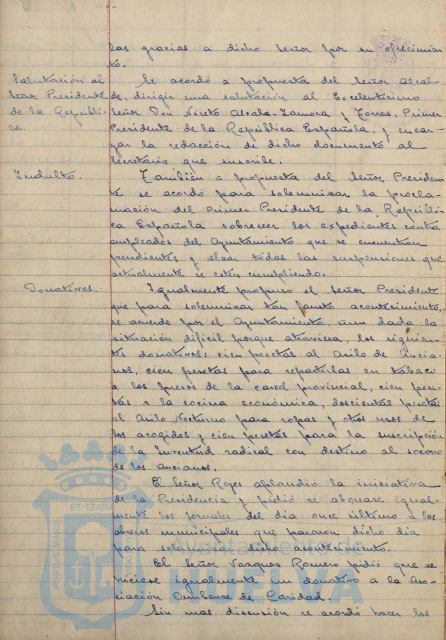 las gracias a dicho Señor por su ofrecimien
to.
Salutación al
Señor Presidente
de la Repúbli
ca.
Se acordó a propuesta del Señor Alcal
de, dirigir una salutación al Excelentísimo
Señor Don Niceto Alcalá-Zamora y Torres, Primer
Presidente de la República Española, y encar
gar la redacción de dicho documento al
Secretario que suscribe.
Indulto.
También a propuesta del Señor Presiden
te se acordó para solemnizar la procla-
mación del Primer Presidente de la Repúbli
ca Española sobreseer los expedientes contra
empleados del Ayuntamiento que se encuentran
pendientes y alzar todas las suspensiones que
actualmente se estén cumpliendo.
Donativos.
Igualmente propuso el Señor Presidente
que para solemnizar tan fausto acontecimiento,
se acuerde por el Ayuntamiento, aun dada la
situación difícil porque atraviesa, los siguien
tes donativos: cien pesetas al Asilo de Ancia
nos, cien pesetas para repartirlas en tabaco
a los presos de la carcel provincial, cien pese
tas a la cocina económica, doscientas pesetas
al Asilo Nocturno para ropas y otros usos de
los acogidos y cien pesetas para la suscripción
de la Juventud radical con destino al socorro
de los ancianos.
El Señor Rojas aplaudió la iniciativa
de la Presidencia y pidió se abonase igual
mente los jornales del día once último a los
obreros municipales que pararon dicho día
para solemnizar dicho acontecimiento.
El Señor Vazquez Romero pidió que se
hiciese igualmente un donativo a la Aso
ciación Onubense de Caridad.
Sin mas discusión se acordó hacer los
Ayuntamiento de
HUELVA
PORTUS MARIS
ET TERRAE